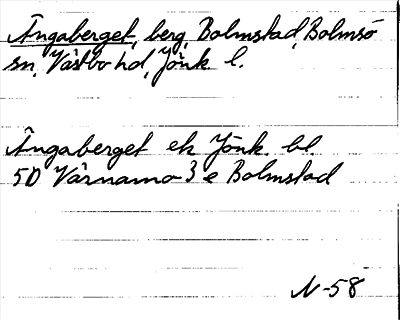 Ängaberget, berg, Bolmstad, Bolmsö
sn, Västbo hd, Jönk l.
Ängaberget ek Jönk. bl.
5D Värnamo 3 e Bolmstad
N-58